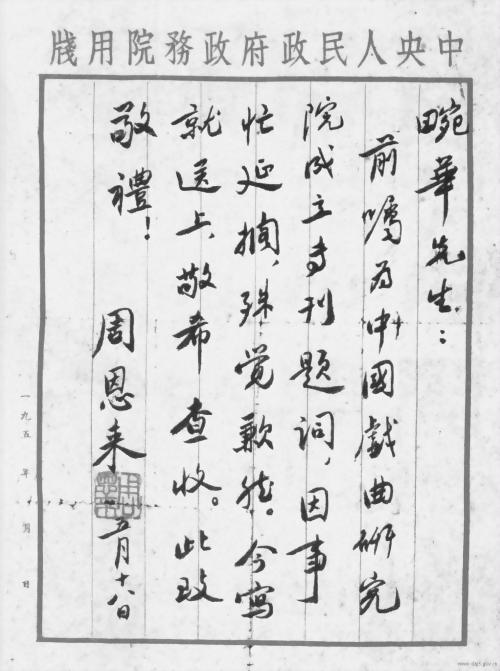 中央人民政府政務院用牋
畹華先生：
前嘱为中國戲曲研究
院成立专刊题词，因事
忙延搁，殊觉歉然。今寫
就送上，敬希查收。此致
敬禮！
周恩来
五月十八日
一九五 年 月 日